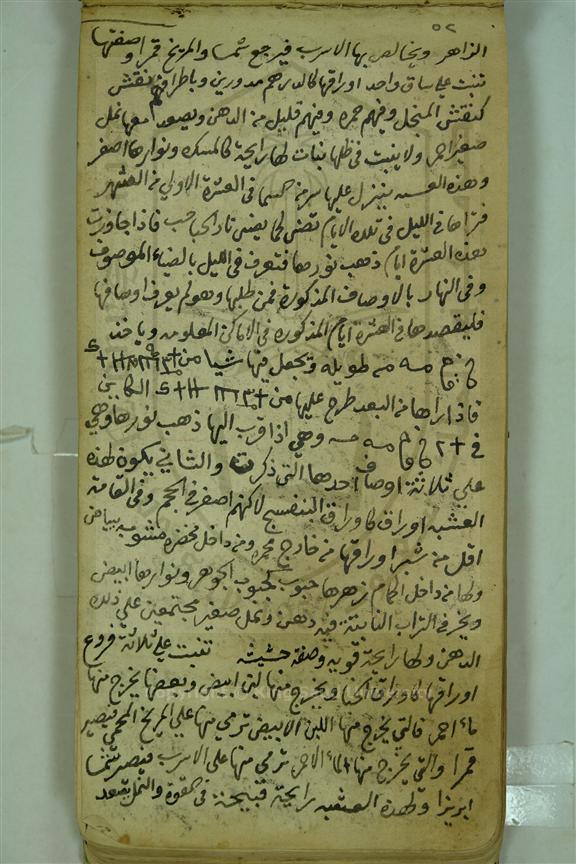 ٥٢
الزاهر ويخالص بها الاسرب فيرجع شمسا والمريخ قمرا وصفتها
تنبت على ساق واحد اوراقها كالدرهم مدورين وباطرافهم نقش
كنقش المنجل وفيهم حمره وفيهم قليل من الدهن ويصعد معها نمل
صغير احمر ولا ينبت في ظلها نبات لها رايحة كالمسك ونوارها اصفر
وهذه العشبه ينزل عليها من السما في العشرة الاولي من الشهر
فتراها في الليل في تلك الايام تضي كما يضي نار الحباحب فاذا جاوزت
هذه العشرة ايام ذهب نورها فتعرف في الليل بالضياء الموصوف
وفي النهار بالاوصاف المذكورة فمن طلبها وهو لم يعرف اوصافها
فليقصدها في العشرة ايام المذكوره في الاماكن المعلومه وياخذ
طويله ويجعل فيها شيا من
فاذا راها من البعد طرح عليها من الكاين
في وهي اذا قرب اليها ذهب نورها وهي
علي ثلاثة اوصاف احدها التي ذكرت والثاني يكون لهذه
العشبه اوراق كاوراق البنفسج لاكنهم اصغر في الحجم وفي القامة
اقل من شبر اوراقها من خارج محمره ومن داخل مخضره مشوبه ببياض
ولها من داخل اكمام زهرها حبوب كحبوب الجوهر ونوارها ابيض
ويخر في التراب النابتة فيه دهن ونمل صغير مجتمعين علي ذلك
الدهن ولها رايحة قويه وصفة حشيشه تنبت علي ثلاثة فروع
اوراقها كاوراق الحنا ويخرج منها لبن ابيض وبعضها يخرج منها
ماء احمر فالتي يخرج منها اللبن الابيض ترمي منها علي المريخ المحمي فيصير
قمرا والتي يخرج منها الماء الاحمر ترمي منها علي الاسرب فيصير شمسا
ابريزا ولهذه العشبه رايحة قبيحة والنمل يقصد